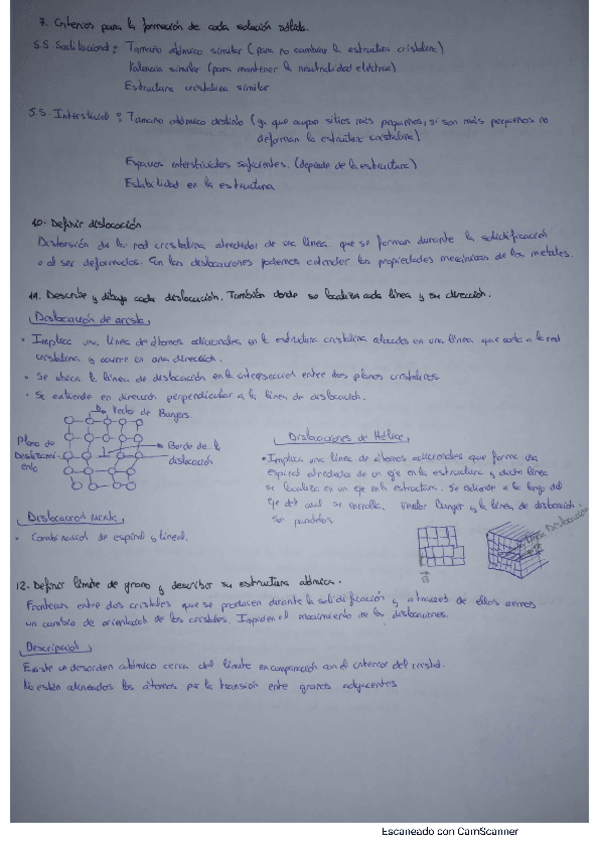 7. Criterios para la formación de cada solución sólida.
S.S. Sustitucional: Tamaño atómico similar (para no cambiar la estructura cristalina)
Valencia similar (para mantener la neutralidad eléctrica)
Estructura cristalina similar
S.S. Intersticial: Tamaño atómico distinto (ya que ocupa sitios más pequeños, si son más pequeños no
deforman la estructura cristalina)
Espacios intersticiales suficientes. (depende de la estructura)
Estabilidad en la estructura
10. Definir dislocación
Distorsión de la red cristalina alrededor de una línea que se forman durante la solidificación
o al ser deformados. Con las dislocaciones podemos entender las propiedades mecánicas de los metales.
11. Describe y dibuja cada dislocación. También donde se localiza cada línea y su dirección.
Dislocación de arista
• Implica una línea de átomos adicionales en la estructura cristalina en una línea que corta a la red
cristalina y ocurre en una dirección.
• Se ubica la línea de dislocación en la intersección entre dos planos cristalinos.
• Se extiende en dirección perpendicular a la línea de dislocación.
Vector de Burgers.
Plano de
Deslizami-
ento
Borde de la
dislocación
Dislocaciones de Hélice
• Implica una línea de átomos adicionales que forme una
espiral alrededor de un eje en la estructura y dicha línea
se localiza en un eje en la estructura. Se extiende a lo largo del
eje del cual se enrolla. Vector Burger y la línea de dislocación
son paralelos
Línea Dislocación
B
Dislocación mixta
• Combinación de espiral y lineal.
12. Definir límite de grano y describir su estructura atómica.
Fronteras entre dos cristales que se producen durante la solidificación y a través de ellos vemos
un cambio de orientación de los cristales. Impiden el movimiento de las dislocaciones.
Descripción
Existe un desorden atómico cerca del límite en comparación con el interior del cristal.
No están alineados los átomos por la transición entre granos adyacentes
Escaneado con CamScanner